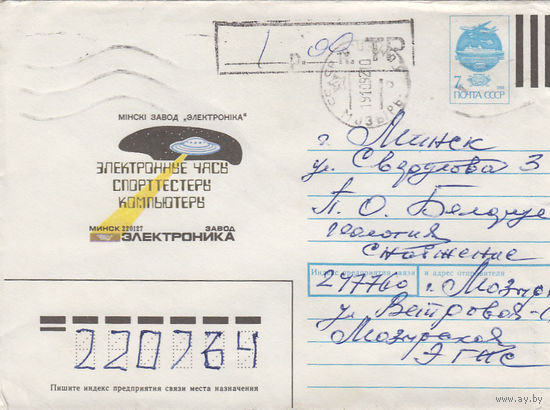 1-00
р. к. ТР
МОЗЫРЬ
191092
7к
ПОЧТА СССР
МІНСКІ ЗАВОД „ЭЛЕКТРОНІКА"
ЭЛЕКТРОННЫЕ ЧАСЫ
СПОРТТЕСТЕРЫ
КОМПЬЮТЕРЫ
МИНСК 220127 ЗАВОД
ЭЛЕКТРОНИКА
г. Минск
ул. Свердлова 3
П. О. Белорус
геология
Снабжение
Индекс предприятия связи и адрес отправителя
247760 г. Мозырь
ул. Ветровая
Мозырская
ЭГИС
220764
Пишите индекс предприятия связи места назначения
www.ay.by